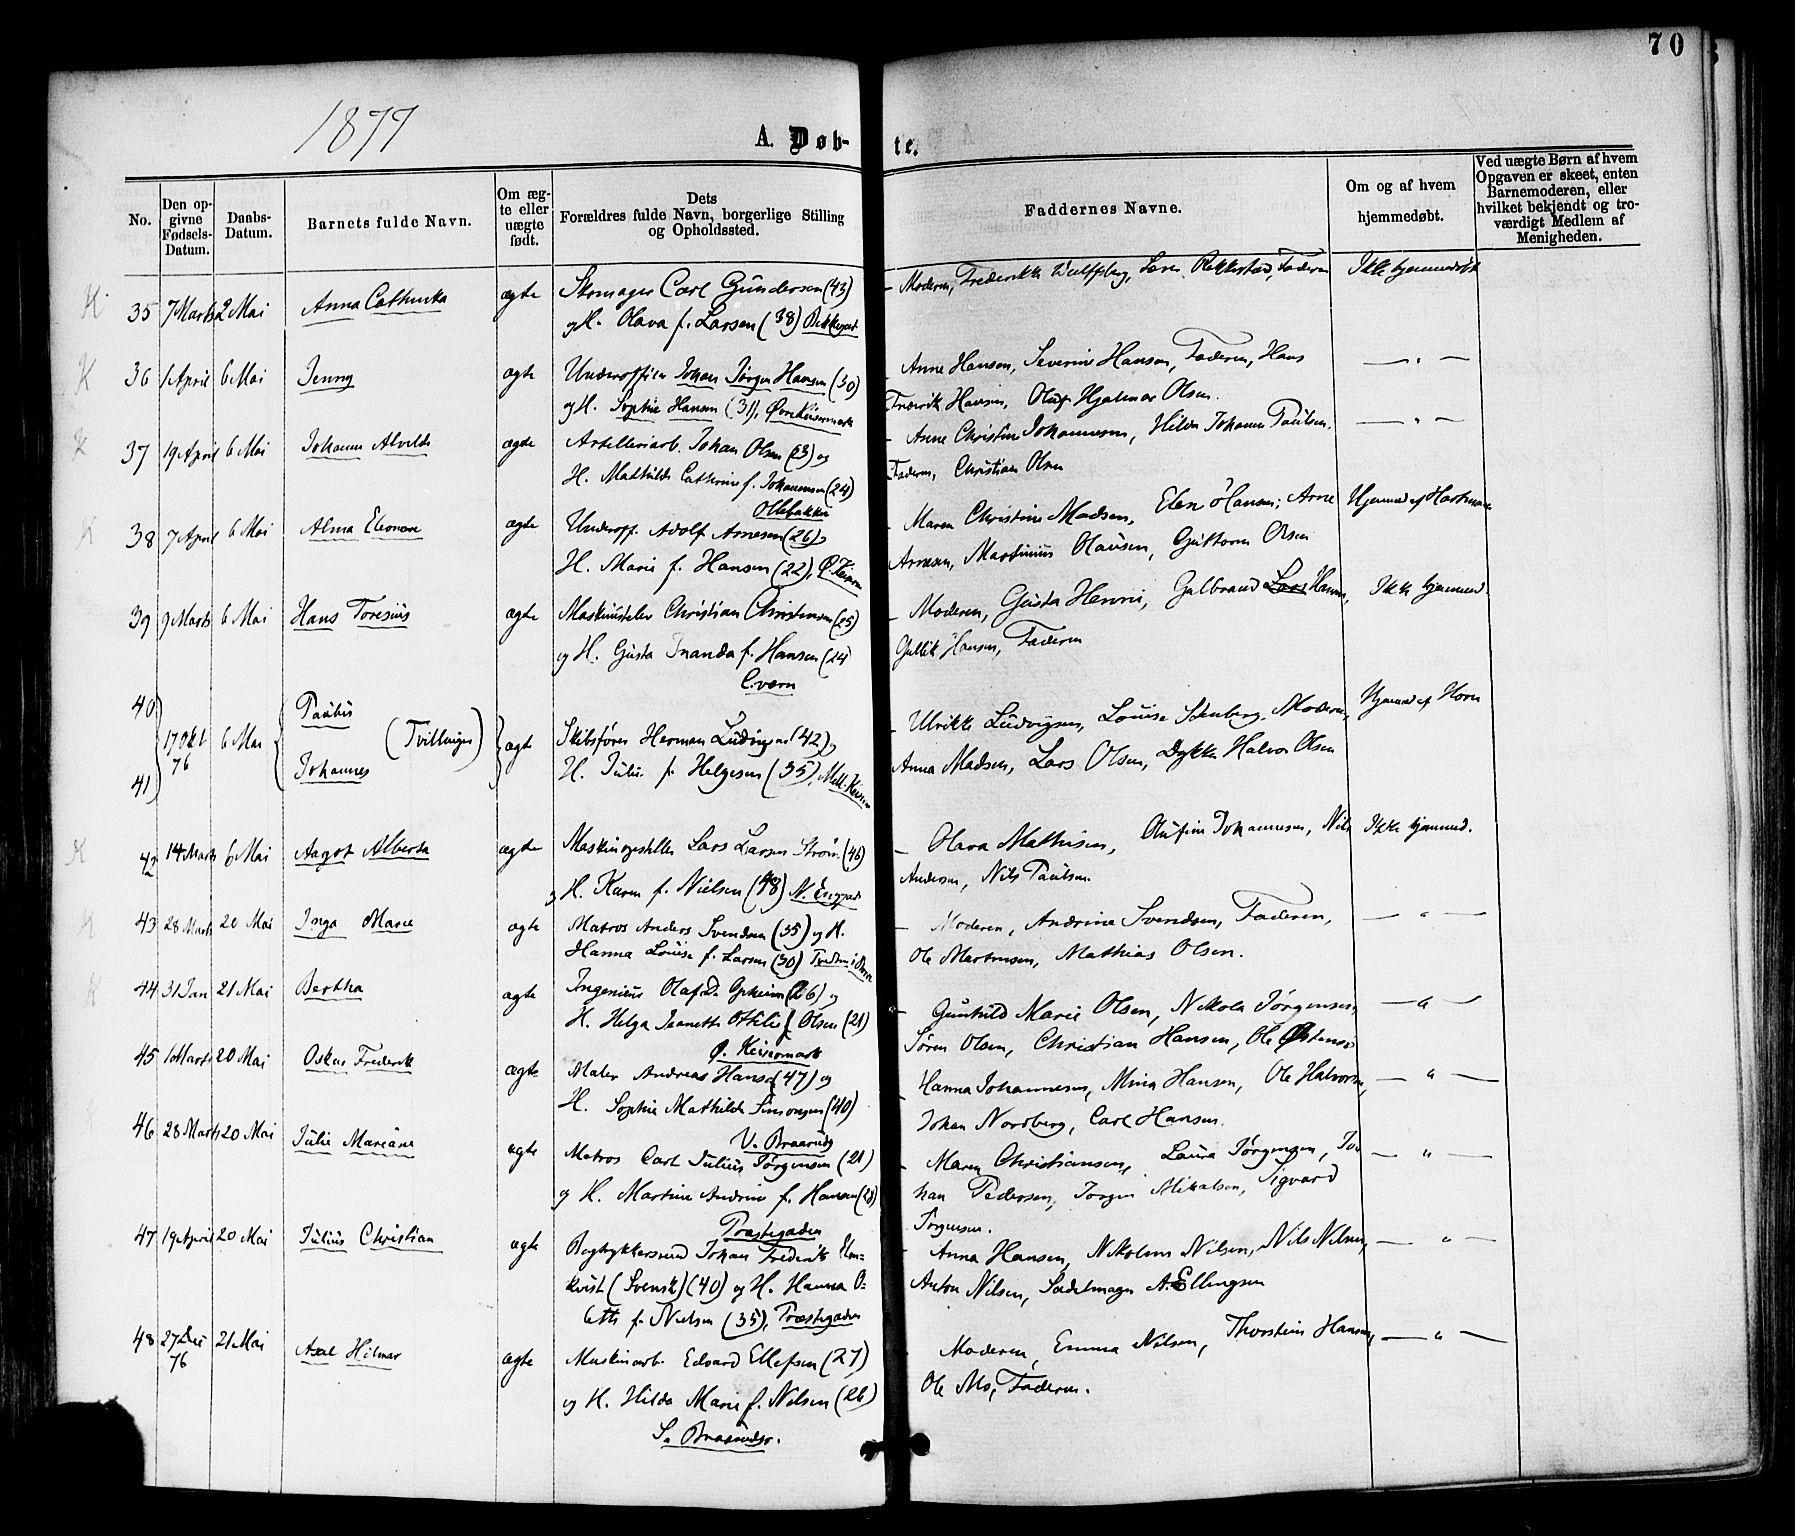 70
1877
A. Døb- te.
No.
Den opgivne Fødsels-Datum.
Daabs-Datum.
Barnets fulde Navn.
Om ægte eller uægte født.
Dets Forældres fulde Navn, borgerlige Stilling og Opholdssted.
Faddernes Navne.
Om og af hvem hjemmedøbt.
Ved uægte Børn af hvem Opgaven er skeet, enten Barnemoderen, eller hvilket bekjendt og troværdigt Medlem af Menigheden.
K 35 7 Marts 2 Mai Anna Cathinka ægte Skomager Carl Gundersen (43) – Moderen, Frederikke Lars Rekkestad, Faderen Ikke hjemmedøbt
og H. Olava f. Larsen (38)
K 36 1 April 6 Mai Jenny ægte Underofficer Johan Jørgen Hansen (30) Anne Hansen, Severine Hansen, Faderen, Hans — " —
og H. Sophie Hansen (31), Fredrik Hansen, Oluf Hjalmar Olsen.
K 37 19 April 6 Mai Johanne Alvilde ægte Artilleriarb. Johan Olsen (23) og Anne Christine Johannesen, Hilda Johanne Paulsen, — " —
H. Mathilde Cathrine f. Johannesen (24) Faderen, Christian Olsen
K 38 7 April 6 Mai Alma Eleonore ægte Underoff. Adolf Arnesen (26) – Maren Christine Madsen, Elen Hansen, Arne Hjemmed af Hartmann
H. Marie f. Hansen (22), Arnesen, Martinius Olausen, Guttorm Olsen
39 9 Marts 6 Mai Hans Toresius ægte Christian Christensen (25) – Moderen, Gusta Henni, Gulbrand Lars Hansen, Ikke hjemmed.
og H. Gusta f. Hansen (24 Gullik Hansen, Faderen
40 17 Okt 76 6 Mai Paulus (Tvillinger) ægte Skibsfører Herman Ludvigsen (42) – Ulrikke Ludvigsen, Louise Moderen, Hjemmed af Horn
41 Johannes H. Julie f. Helgesen (35), Anna Madsen, Lars Olsen, Halvor Olsen
K 42 14 Marts 6 Mai Aagot Alberta ægte Lars Larsen Strøm (46) – Olava Mathisen, Olufine Johannesen, Nils Ikke hjemmed.
og H. Karen f. Nielsen (48) Andersen, Nils Paulsen.
K 43 28 Marts 20 Mai Inga Marie ægte Matros Anders Svendsen (35) og H. – Moderen, Andrine Svendsen, Faderen, — " —
Hanna Louise f. Larsen (30) Ole Martinsen, Mathias Olsen.
K 44 31 Jan 21 Mai Bertha ægte Ingeniør Olaf D. (26) og – Gunhild Marie Olsen, Nikola Jørgensen, — " —
H. Helga Jeanette Ottilie f Olsen (21) Søren Olsen, Christian Hansen, Ole
Ø. Keisermark
45 1 Marts 20 Mai Oskar Frederik ægte Maler Andreas Hansen (47) og Hanna Johannesen, Mina Hansen, Ole Halvorsen, — " —
H. Sophie Mathilde Simonsen (40) Johan Nordberg, Carl Hansen.
46 28 Marts 20 Mai Julie Mariane ægte Matros Carl Julius Jørgensen (21) – Maren Christiansen, Laura Jørgensen, Jo- — " —
og H. Martine Andrine f. Hansen (23) han Pedersen, Jørgen Mikalsen, Sigvard
Præstegaden Jørgensen.
47 19 April 20 Mai Julius Christian ægte Bogtrykkersvend Johan Frederik – Anna Hansen, Nikoline Nilsen, Nils Nilsen, — " —
kvist (Svensk) (40) og H. Hanna O- Anton Nilsen, Sadelmager A. Ellingsen
lette f. Nielsen (35), Præstegaden
48 27 Dec 76 21 Mai Axel Hilmar ægte Maskinarb. Edvard Ellefsen (27) Moderen, Emma Nilsen, Thorstein Hansen, — " —
og H. Hilda Marie f. Nilsen (26) Ole Mo, Faderen.
S. Braarudgr.